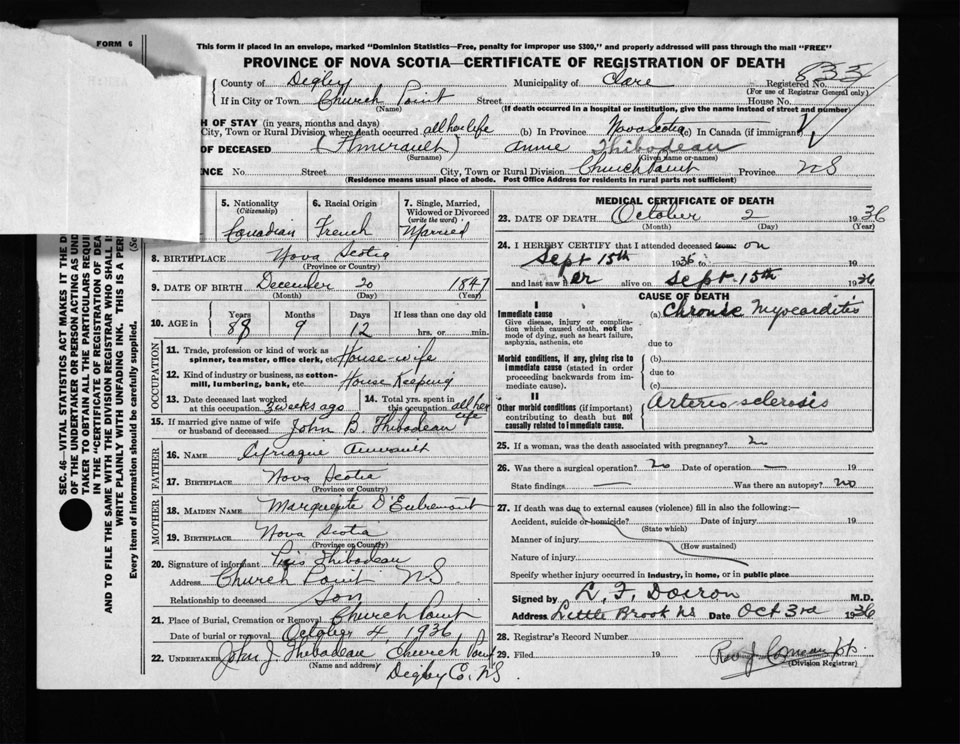 FORM 6
This form if placed in an envelope, marked "Dominion Statistics—Free, penalty for improper use $300," and properly addressed will pass through the mail "FREE"
PROVINCE OF NOVA SCOTIA—CERTIFICATE OF REGISTRATION OF DEATH
County of Degby Municipality of Clare Registered No. 833
(For use of Registrar General only)
If in City or Town Church Point Street House No.
(Name) (If death occurred in a hospital or institution, give the name instead of street and number)
H OF STAY (in years, months and days)
City, Town or Rural Division where death occurred all her life (b) In Province Nova Scotia (c) In Canada (if immigrant)
OF DECEASED (Amirault) Annie Thibodeau
(Surname) (Given name or names)
ENCE No. Street City, Town or Rural Division Church Point Province NS
(Residence means usual place of abode. Post Office Address for residents in rural parts not sufficient)
5. Nationality (Citizenship) Canadian
6. Racial Origin French
7. Single, Married, Widowed or Divorced (write the word) Married
8. BIRTHPLACE Nova Scotia
(Province or Country)
9. DATE OF BIRTH December 20 1847
(Month) (Day) (Year)
10. AGE in Years Months Days If less than one day old
88 9 12 hrs. or min.
OCCUPATION
11. Trade, profession or kind of work as spinner, teamster, office clerk, etc. House-wife
12. Kind of industry or business, as cotton-mill, lumbering, bank, etc. House Keeping
13. Date deceased last worked at this occupation 3 weeks ago
14. Total yrs. spent in this occupation all her life
15. If married give name of wife or husband of deceased John B. Thibodeau
FATHER
16. NAME Cyriaque Amirault
17. BIRTHPLACE Nova Scotia
(Province or Country)
MOTHER
18. MAIDEN NAME Marguerite D'Entremont
19. BIRTHPLACE Nova Scotia
(Province or Country)
20. Signature of informant Thibodeau
Address Church Point NS
Relationship to deceased Son
21. Place of Burial, Cremation or Removal Church Point
Date of burial or removal October 4 1936
22. UNDERTAKER John J. Thibadeau Church Point
(Name and address)
Degby Co. NS.
MEDICAL CERTIFICATE OF DEATH
23. DATE OF DEATH October 2 1936
(Month) (Day) (Year)
24. I HEREBY CERTIFY that I attended deceased from: on
Sept 15th 1936 to 19
and last saw her alive on Sept. 15th 1936
CAUSE OF DEATH
I
Immediate cause
Give disease, injury or complication which caused death, not the mode of dying, such as heart failure, asphyxia, asthenia, etc
(a) Chronic Myocarditis
due to
Morbid conditions, if any, giving rise to immediate cause (stated in order proceeding backwards from immediate cause).
(b)
due to
(c)
II
Other morbid conditions (if important) contributing to death but not causally related to immediate cause.
Arterio-sclerosis
25. If a woman, was the death associated with pregnancy? No
26. Was there a surgical operation? No Date of operation — 19
State findings — Was there an autopsy? No
27. If death was due to external causes (violence) fill in also the following:—
Accident, suicide or homicide? Date of injury 19
(State which)
Manner of injury
(How sustained)
Nature of injury
Specify whether injury occurred in industry, in home, or in public place
Signed by L. F. Doiron M.D.
Address Little Brook NS Date Oct 3rd 1936
28. Registrar's Record Number
29. Filed 19 Rev J Comeau
(Division Registrar)
SEC. 46—VITAL STATISTICS ACT MAKES IT THE D
OF THE UNDERTAKER OR PERSON ACTING AS UND
TAKER TO OBTAIN ALL THE PARTICULARS REQUIR
IN THE "CERTIFICATE OF REGISTRATION OF DEA
AND TO FILE THE SAME WITH THE DIVISION REGISTRAR WHO SHALL I
WRITE PLAINLY WITH UNFADING INK. THIS IS A PER
Every item of information should be carefully supplied. (Se